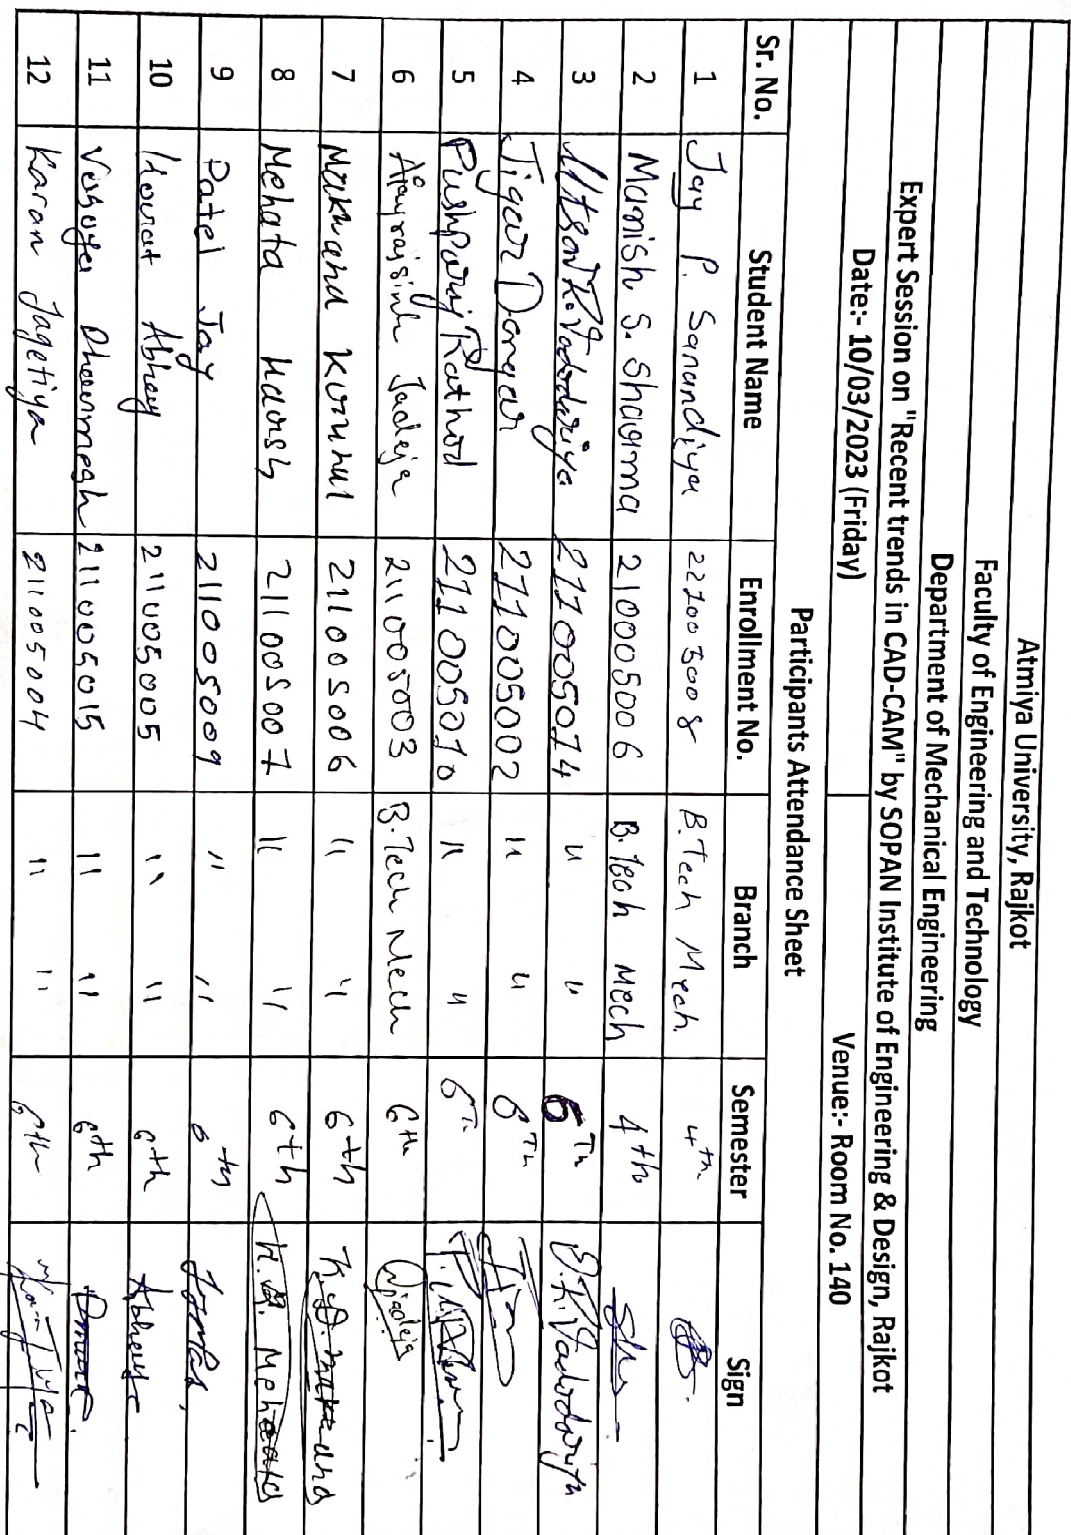 Atmiya University, Rajkot
Faculty of Engineering and Technology
Department of Mechanical Engineering
Expert Session on "Recent trends in CAD-CAM" by SOPAN Institute of Engineering & Design, Rajkot
Date:- 10/03/2023 (Friday) Venue:- Room No. 140
Participants Attendance Sheet
Sr. No. Student Name Enrollment No. Branch Semester Sign
1 Jay P. Sanandiya 221003008 B.Tech Mech. 4th
2 Manish S. Sharma 210005006 B.Tech Mech 4th
3 K. Vadodariya 211005014 " " 6Th B.K.Vadodariya
4 Jigar Dangar 211005002 " " 6Th
5 Pushparaj Rathod 211005010 " " 6Th
6 Ajayrajsinh Jadeja 211005003 B.Tech Mech 6th
7 Makwana Kunal 211005006 " " 6th K.D.makwana
8 Mehata Harsh 211005007 " " 6th Mehata
9 Patel Jay 211005009 " " 6th
10 Abhay 211005005 " " 6th
11 Vasoya Dharmesh 211005015 " " 6th
12 Karan Jagetiya 211005004 " " 6th